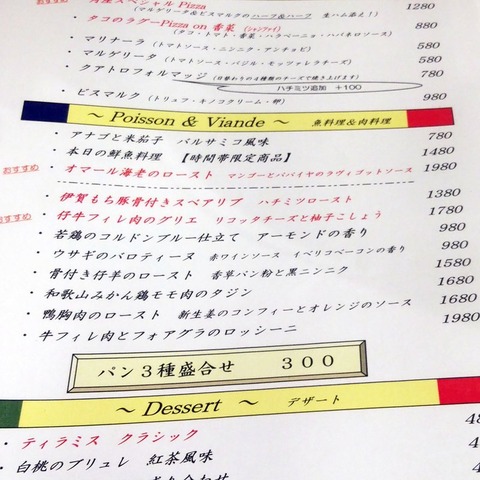 スペシャル Pizza 1280
(マルゲリータ&ビスマルクのハーフ&ハーフ 生ハム添え!)
タコのラグーPizza on 香菜 (シャンツァイ) 880
(タコ・トマト・香菜・ハラペーニョ・ハバネロソース)
・ マリナーラ (トマトソース・ニンニク・アンチョビ) 580
・ マルゲリータ (トマトソース・バジル・モッツァレラチーズ) 580
・ クアトロフォルマッジ (日替わりの4種類のチーズで焼き上げます) 780
ハチミツ追加 +100
・ ビスマルク (トリュフ・キノコクリーム・卵) 980
～ Poisson & Viande ～ 魚料理&肉料理
・ アナゴと米茄子 バルサミコ風味 780
・ 本日の鮮魚料理 【時間帯限定商品】 1480
おすすめ ・ オマール海老のロースト マンゴーとパパイヤのラヴィゴットソース 1980
・ 伊賀もち豚骨付きスペアリブ ハチミツロースト 1380
おすすめ ・ 仔牛フィレ肉のグリエ リコッタチーズと柚子こしょう 1780
・ 若鶏のコルドンブルー仕立て アーモンドの香り 980
・ ウサギのバロティーヌ 赤ワインソース イベリコベーコンの香り 980
・ 骨付き仔羊のロースト 香草パン粉と黒ニンニク 1580
・ 和歌山みかん鶏モモ肉のタジン 1680
・ 鴨胸肉のロースト 新生姜のコンフィーとオレンジのソース 1680
・ 牛フィレ肉とフォアグラのロッシーニ 1980
パン3種盛合せ 300
～ Dessert ～ デザート
・ ティラミス クラシック
・ 白桃のブリュレ 紅茶風味